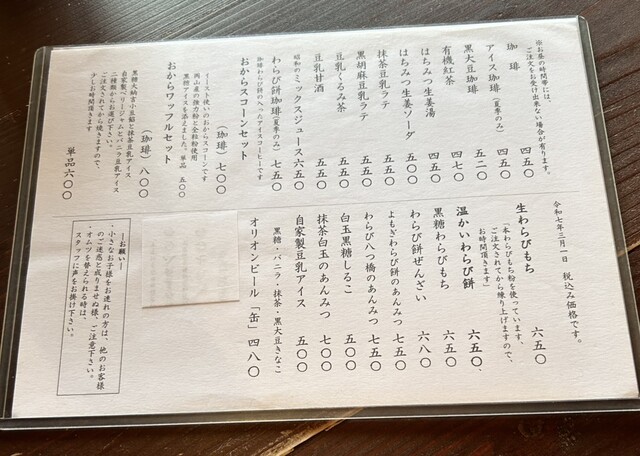 ※お昼の時間帯には、
ご注文をお受け出来ない場合が有ります。
珈琲 四五〇
アイス珈琲(夏季のみ) 四五〇
黒大豆珈琲 五二〇
有機紅茶 四七〇
はちみつ生姜湯 四五〇
はちみつ生姜ソーダ 五〇〇
抹茶豆乳ラテ 五五〇
黒胡麻豆乳ラテ 五五〇
豆乳くるみ茶 五五〇
豆乳甘酒 五五〇
昭和のミックスジュース 六五〇
わらび餅珈琲(夏季のみ) 七五〇
珈琲わらび餅の入ったアイスコーヒーです
おからスコーンセット (珈琲) 七〇〇
イースト使いのおからスコーンです
岡山産の強力粉と全粒粉使用
黒糖アイスを添えました。 単品 五〇〇
おからワッフルセット (珈琲) 八〇〇
黒糖大納言小豆餡と抹茶豆乳アイス
自家製ベリージャムとバニラ豆乳アイス
二種類からお選び下さい。
ご注文されてから焼きますので、
少しお時間頂きます 単品六〇〇
令和七年三月一日 税込み価格です。
生わらびもち 六五〇
「本わらびもち粉を使っています、
ご注文されてから練り上げますので、
お時間頂きます」
温かいわらび餅 六五〇、
黒糖わらびもち 六五〇
わらび餅ぜんざい 六八〇
よもぎわらび餅のあんみつ 七五〇
わらび八つ橋のあんみつ 七五〇
白玉黒糖しるこ 五〇〇
抹茶白玉のあんみつ 七〇〇
自家製豆乳アイス 五〇〇
黒糖・バニラ・抹茶・黒大豆きなこ
オリオンビール「缶」 四八〇
―お願い―
・小さなお子様をお連れの方は、他のお客様
のご迷惑と成りませぬ様、ご注意下さい。
・オムツを替えられる時は、
スタッフに声をお掛け下さい。